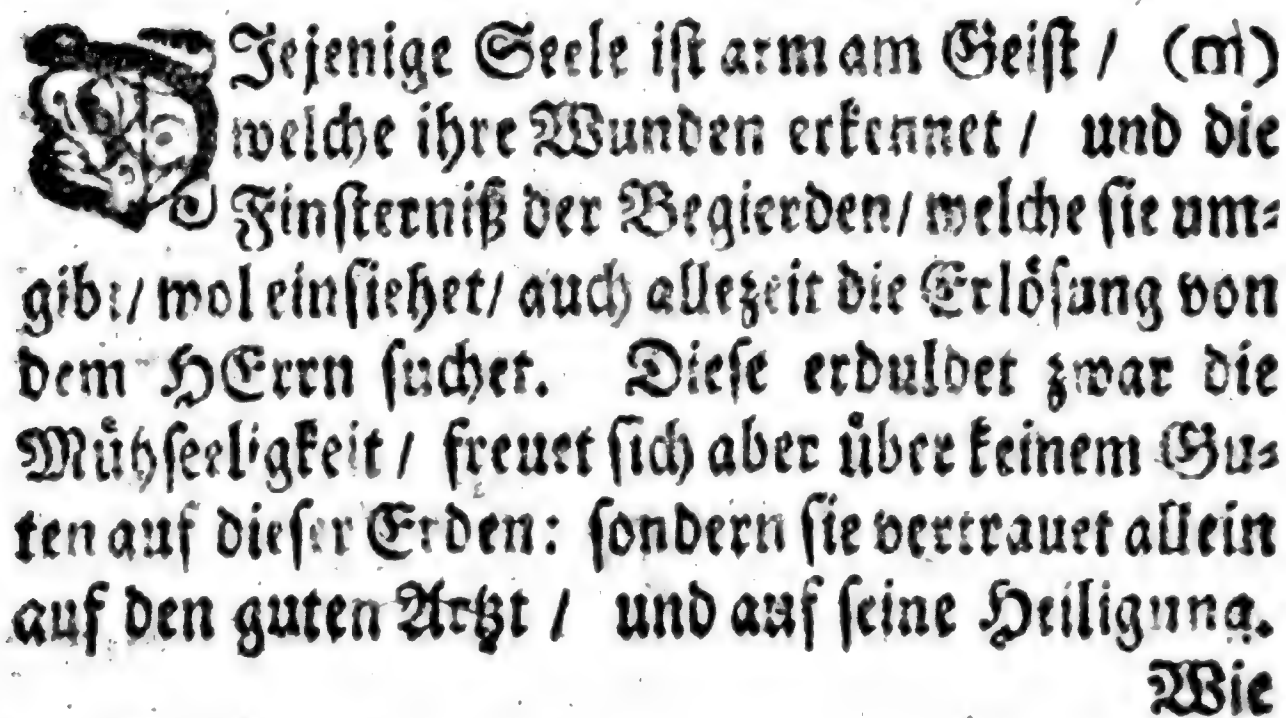 DIejenige Seele iſt arm am Geiſt / (m)
welche ihre Wunden erkennet / und die
Finſterniß der Begierden / welche ſie um⸗
gibt / wol einſiehet / auch allezeit die Erlöſung von
dem HErrn ſuchet. Dieſe erduldet zwar die
Mühſeeligkeit / freuet ſich aber über keinem Gu⸗
ten auf dieſer Erden: ſondern ſie vertrauet allein
auf den guten Artzt / und auf ſeine Heiligung.
Wie